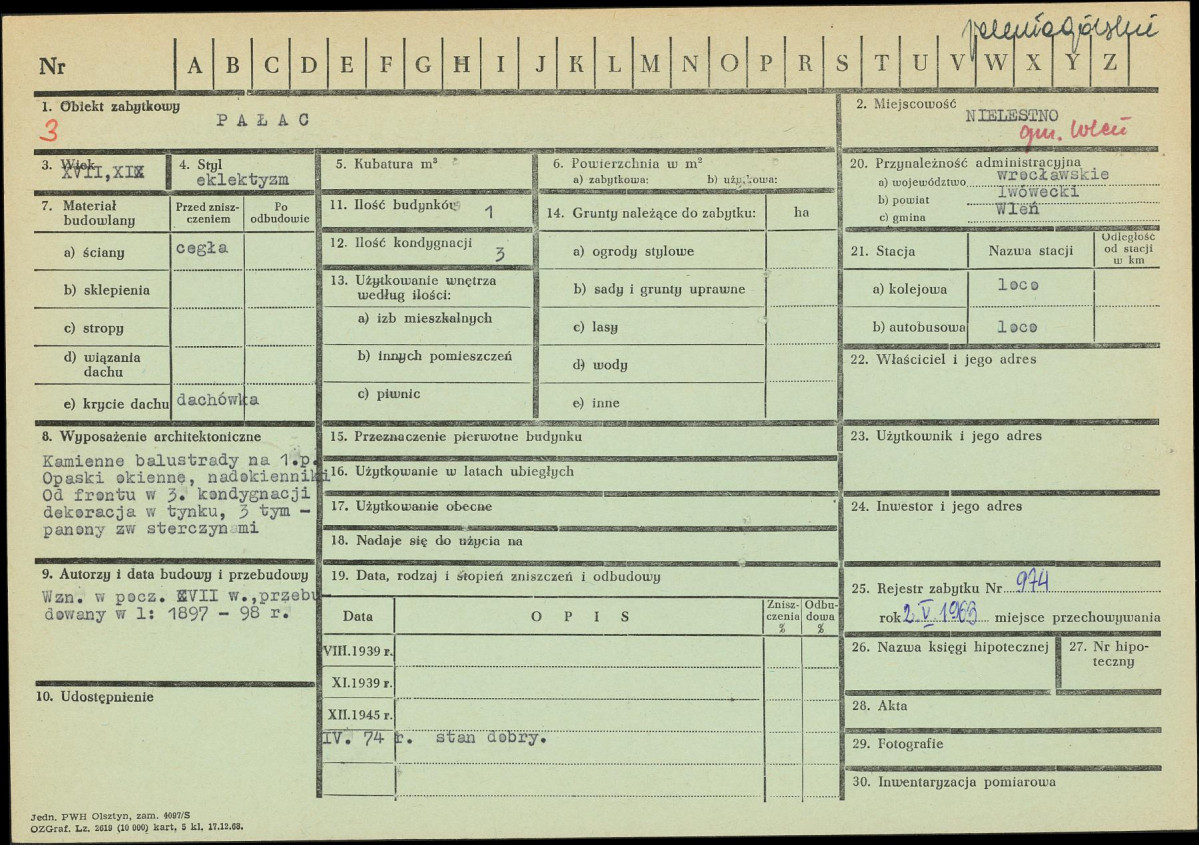 jeleniogórskie
Nr A B C D E F G H I J K L M N O P R S T U V W X Y Z
1. Obiekt zabytkowy
PAŁAC
3
2. Miejscowość
NIELESTNO
gm. Wleń
3. Wiek
XVII, XIX
4. Styl
eklektyzm
5. Kubatura m³
6. Powierzchnia w m²
a) zabytkowa: b) użytkowa:
20. Przynależność administracyjna
a) województwo wrocławskie
b) powiat lwówecki
c) gmina Wleń
7. Materiał budowlany
Przed znisz-
czeniem
Po
odbudowie
a) ściany cegła
b) sklepienia
c) stropy
d) wiązania
dachu
e) krycie dachu dachówka
11. Ilość budynków 1
12. Ilość kondygnacji 3
13. Użytkowanie wnętrza
według ilości:
a) izb mieszkalnych
b) innych pomieszczeń
c) piwnic
14. Grunty należące do zabytku: ha
a) ogrody stylowe
b) sady i grunty uprawne
c) lasy
d) wody
e) inne
21. Stacja Nazwa stacji
Odległość
od stacji
w km
a) kolejowa loco
b) autobusowa loco
22. Właściciel i jego adres
8. Wyposażenie architektoniczne
Kamienne balustrady na 1.p.
Opaski okienne, nadokienniki
Od frontu w 3. kondygnacji
dekoracja w tynku, 3 tym -
panony zw sterczynami
15. Przeznaczenie pierwotne budynku
16. Użytkowanie w latach ubiegłych
17. Użytkowanie obecne
18. Nadaje się do użycia na
23. Użytkownik i jego adres
24. Inwestor i jego adres
9. Autorzy i data budowy i przebudowy
Wzn. w pocz. XVII w., przebu
dowany w l: 1897 - 98 r.
10. Udostępnienie
19. Data, rodzaj i stopień zniszczeń i odbudowy
Data OPIS
Znisz-
czenia
%
Odbu-
dowa
%
VIII.1939 r.
XI.1939 r.
XII.1945 r.
IV. 74 r. stan dobry.
25. Rejestr zabytku Nr 974
rok 2.V.1963 miejsce przechowywania
26. Nazwa księgi hipotecznej
27. Nr hipo-
teczny
28. Akta
29. Fotografie
30. Inwentaryzacja pomiarowa
Jedn. PWH Olsztyn, zam. 4097/S
OZGraf. Lz. 2619 (10 000) kart. 5 kl. 17.12.68.